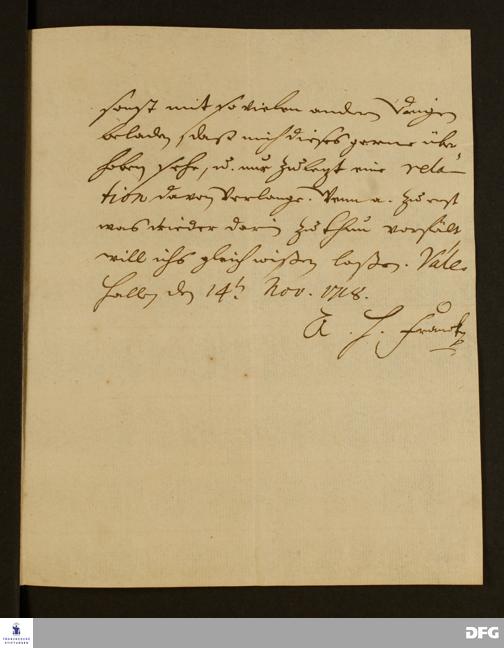 sonst mit so vielen andern Dingen
beladen, daß mich dieses gerne über-
hoben sehe, u. nur zuletzt eine rela-
tion davon verlange. Wenn a. zu erst
was wieder darin zu thun vorfält
will ichs gleich wißen laßen. Vale.
Halle den 14t. Nov. 1718.
A. H. Francke
FRANCKESCHE
STIFTUNGEN
DFG